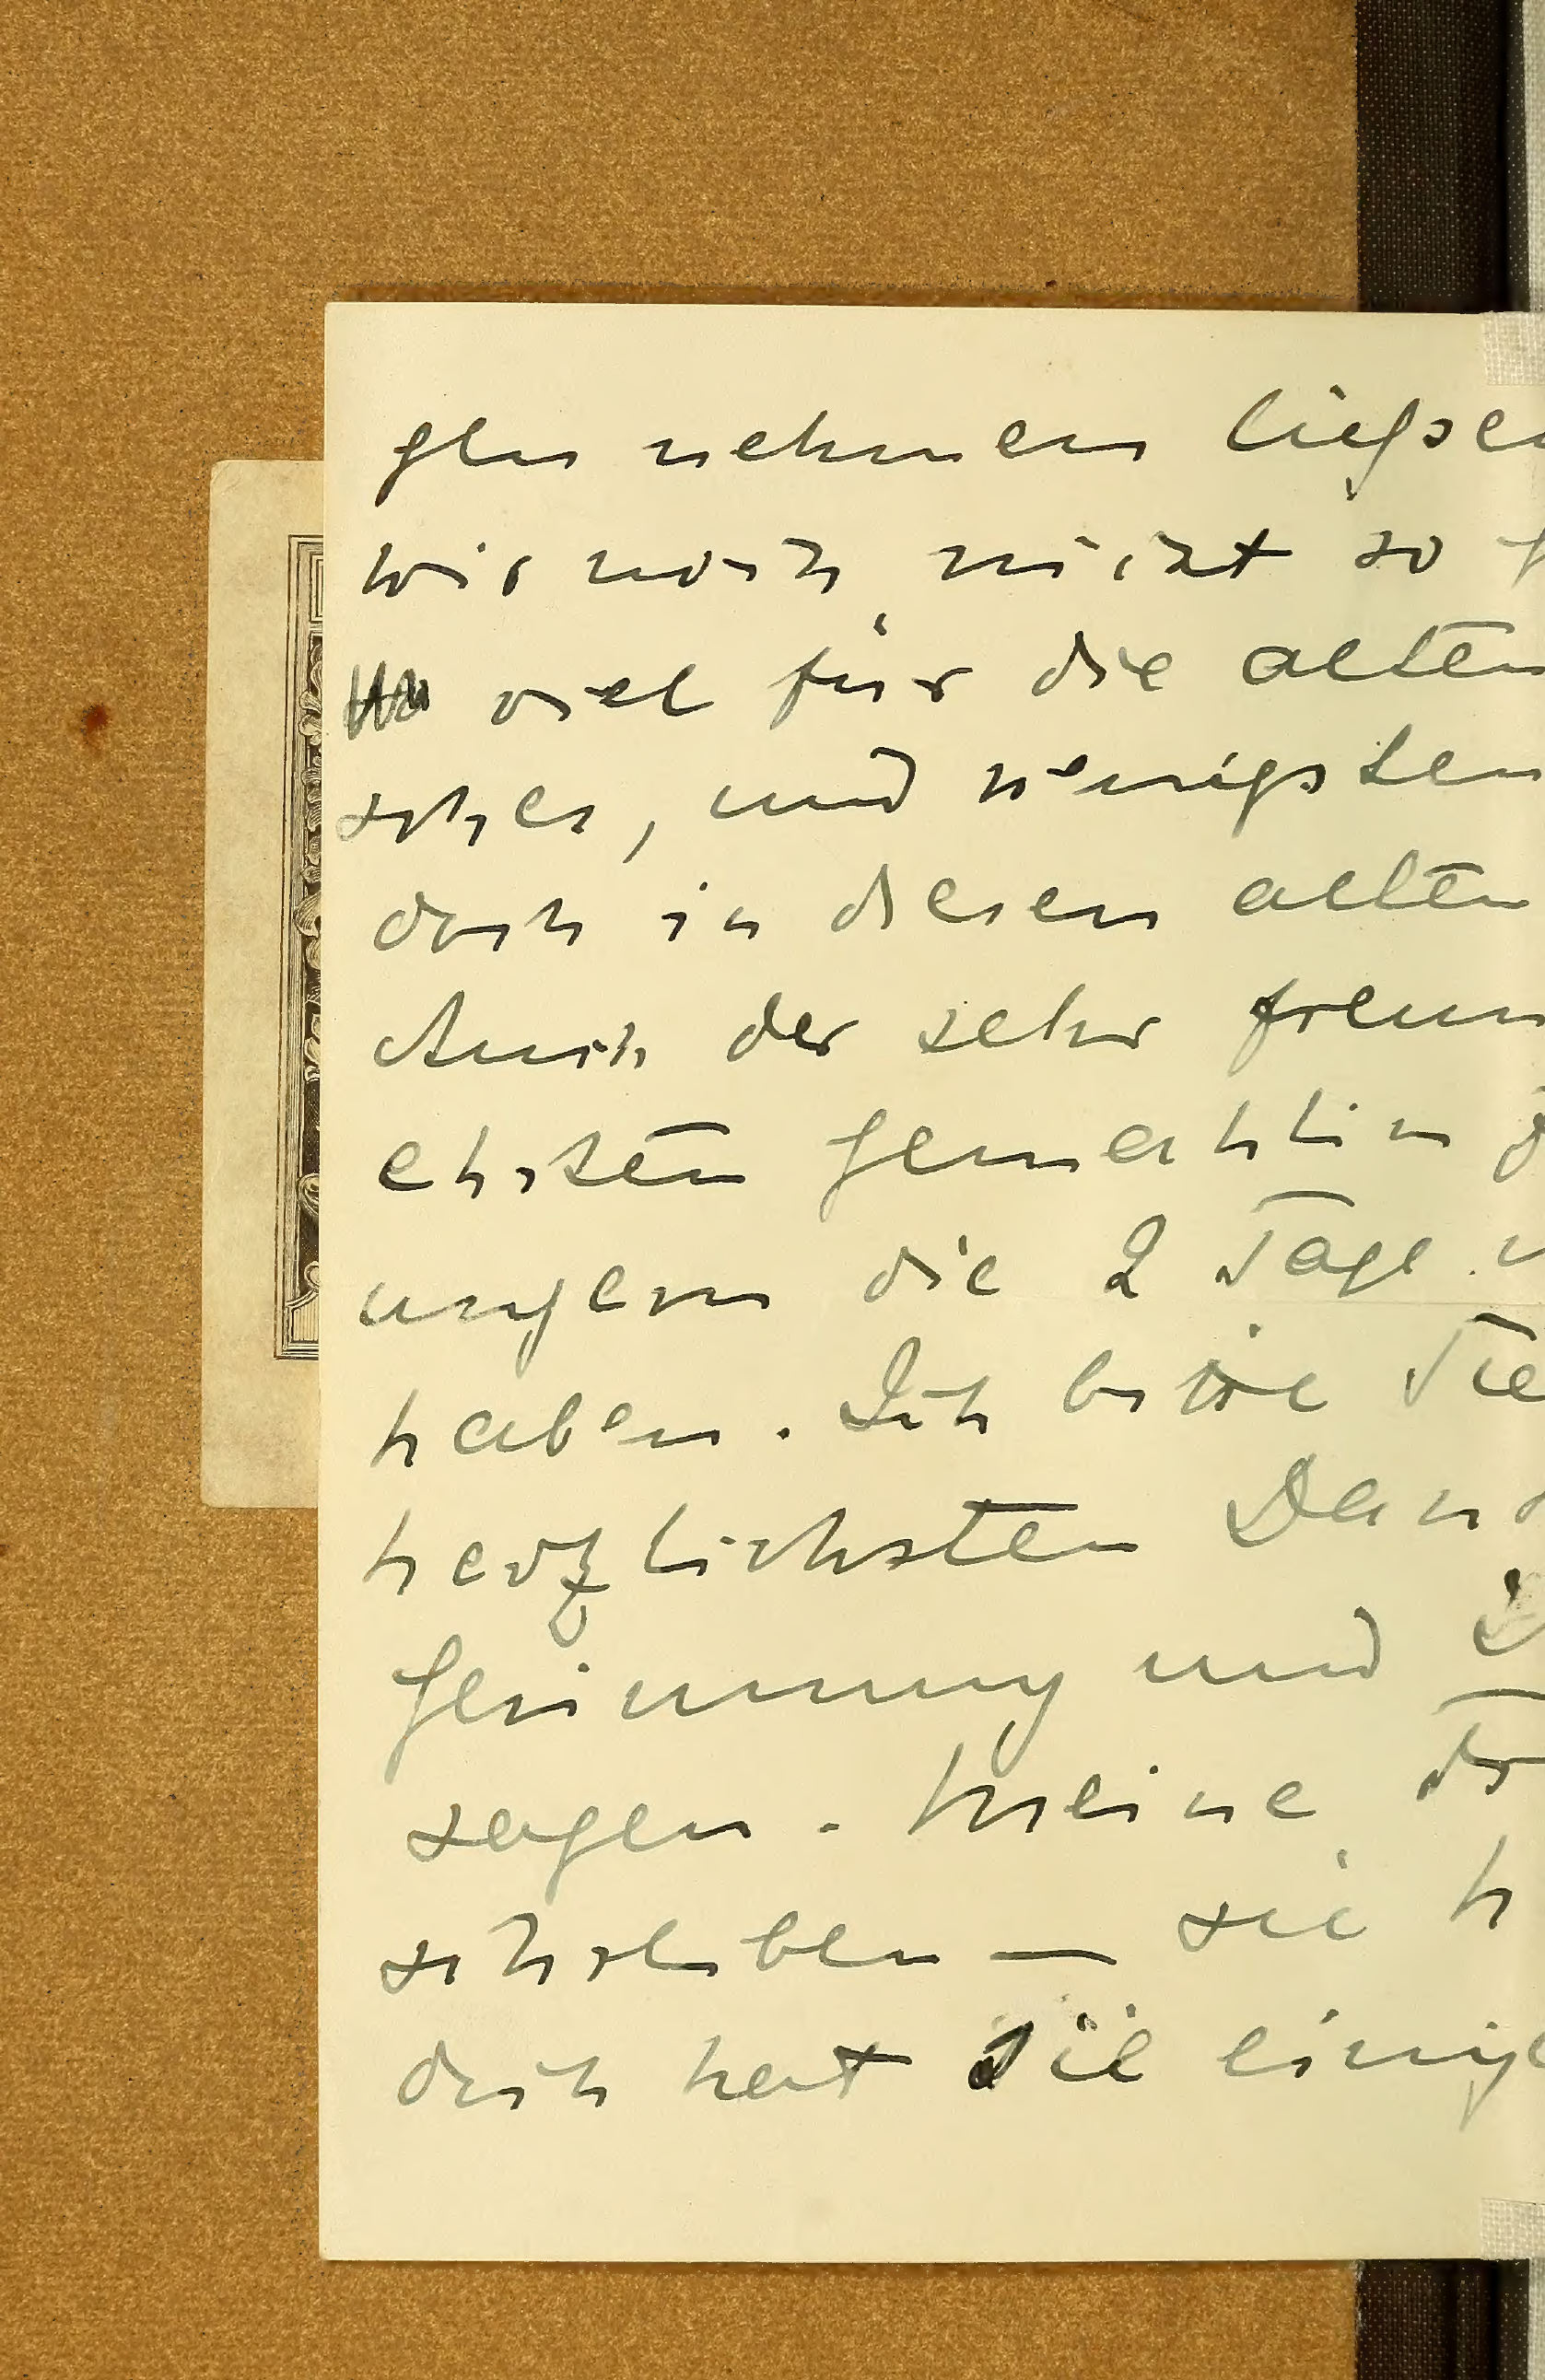 gen nehmen liessen
wir noch nicht so
viel für die alten
scher, und wenigsten
doch in diesen alten
Auch der sehr
ehrten Gemahlin
ungern die 2 Tage
haben. Ich bitte Sie
herzlichsten Dank
Gesinnung und
sagen. Meine
schreiben — sie h
doch hat sie einige